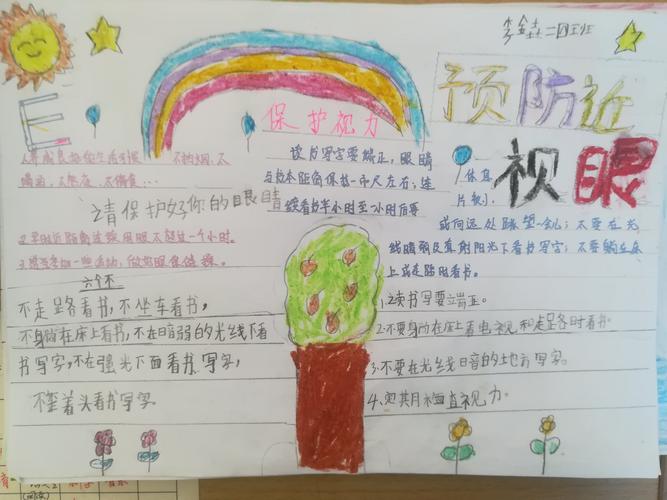 李鑫垚二四班
预防近
视眼
E
保护视力
1.养成良好的生活习惯 不抽烟、不
喝酒、不熬夜、不偏食…
请保护好你的眼睛
2.平时近距离连续用眼不超过一个小时。
3.愿意参加一些运动,做好眼保健操。
读书写字要端正,眼睛
与书本距离保持一市尺左右;连
续看书半小时至一小时后要
休息
片刻,
或向远处眺望一会儿;不要在光
线暗弱及直射阳光下看书写字;不要躺在床
上或走路时看书。
六个不
不走路看书,不坐车看书,
不躺在床上看书,不在暗弱的光线下看
书写字,不在强光下面看书写字,
不歪着头看书写字。
1.读书写要立端正。
2.不要躺在床上看电视和走路时看书。
3.不要在光线暗的地方写字。
4.定期检查视力。